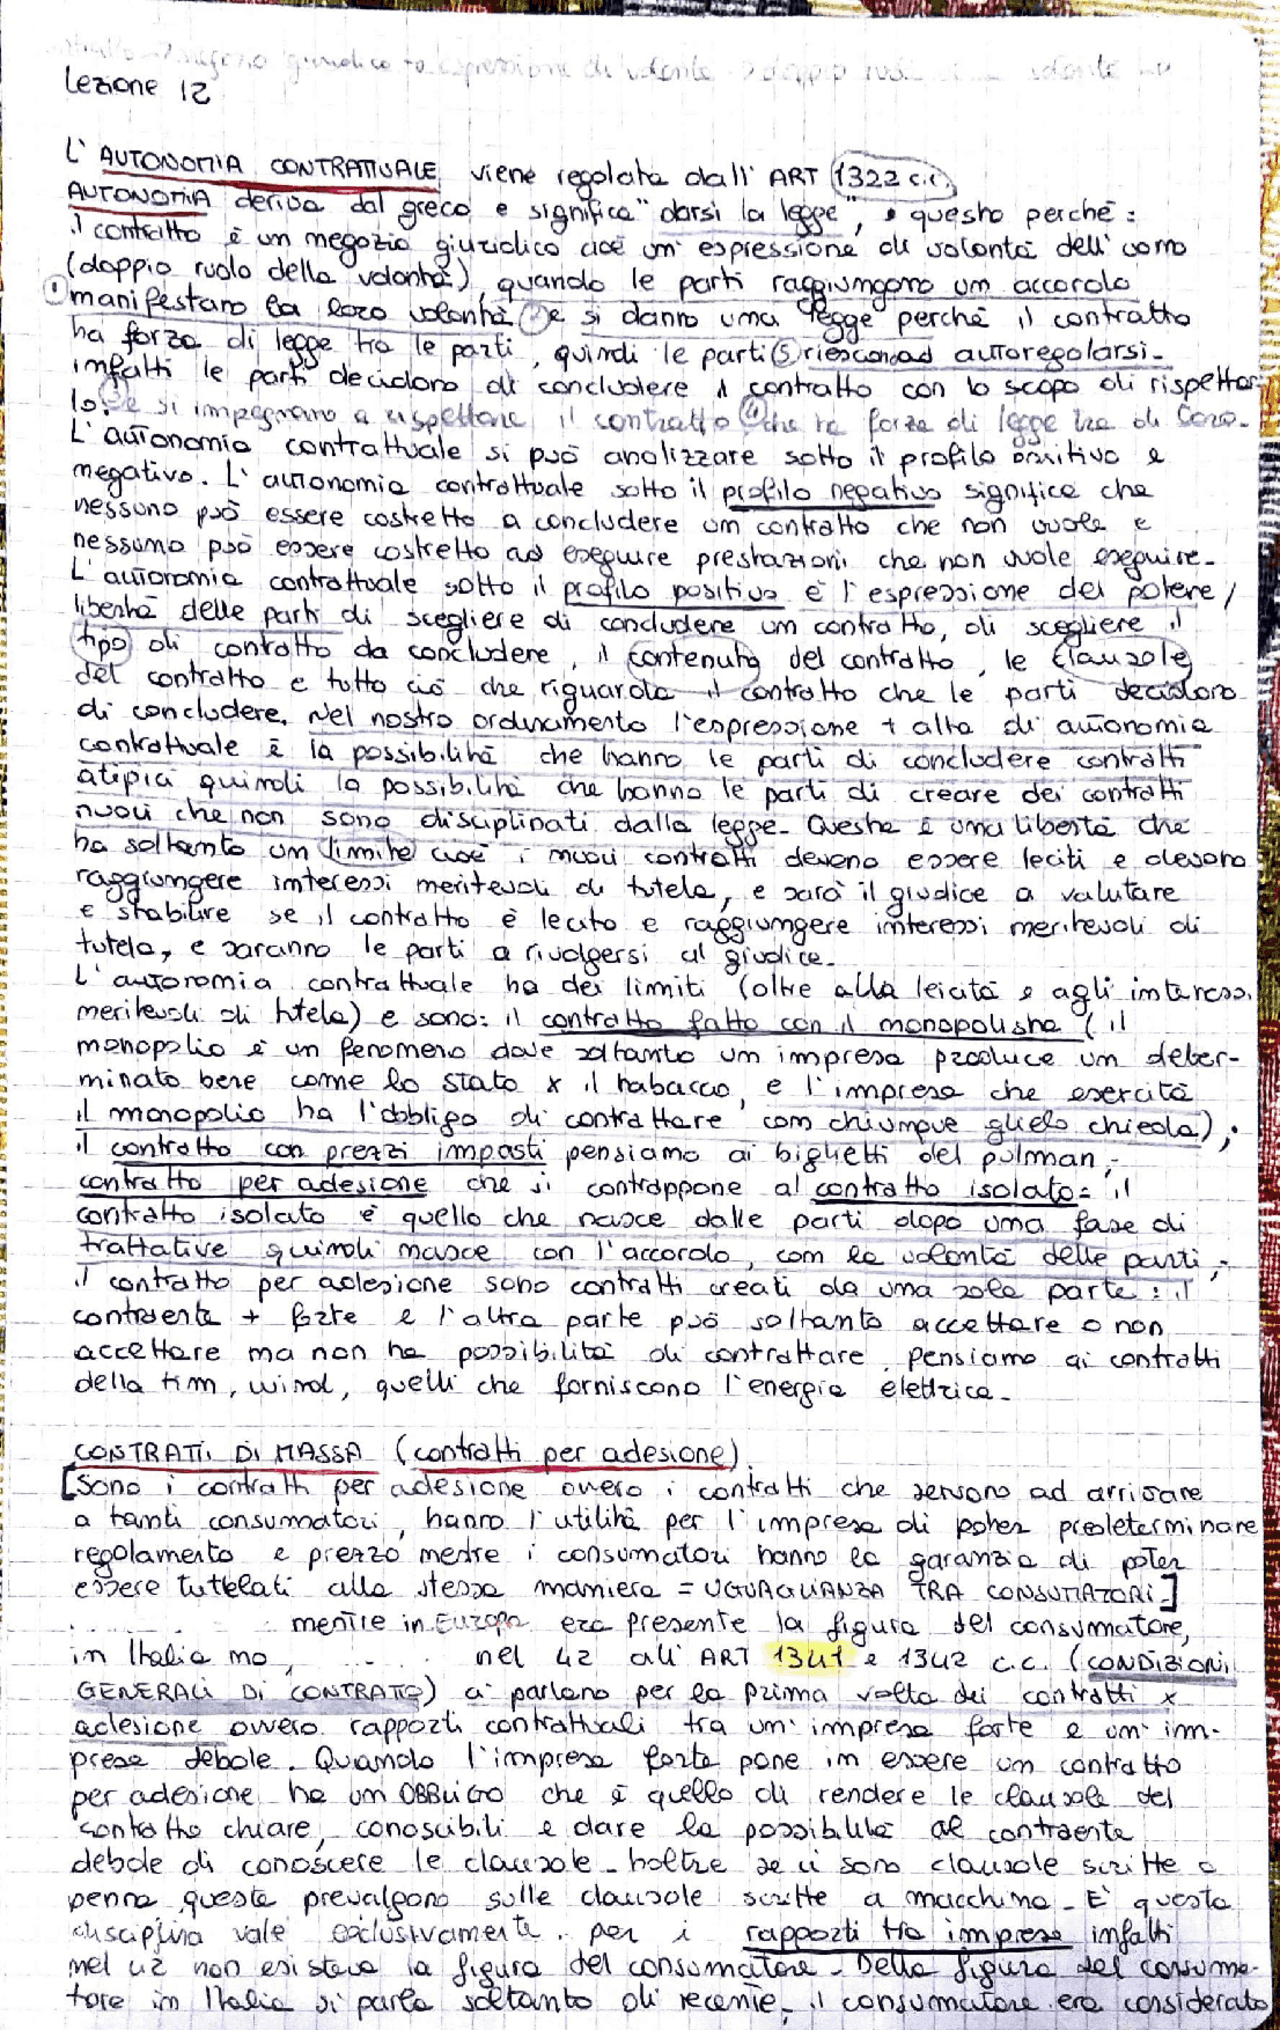 giuridico espressione di volontà doppio
Lezione 12
L'AUTONOMIA CONTRATTUALE viene regolata dall'ART 1322 c.c.
AUTONOMIA deriva dal greco e significa "darsi la legge", e questo perché:
il contratto è un negozio giuridico cioè un'espressione di volontà dell'uomo
(doppio ruolo della volontà), quando le parti raggiungono un accordo
① manifestano la loro volontà ② e si danno una legge perché il contratto
ha forza di legge tra le parti, quindi le parti ⑤ riescono ad autoregolarsi-
infatti le parti decidono di concludere il contratto con lo scopo di rispettar-
lo. ③ e si impegnano a rispettare il contratto ④ che ha forza di legge tra di loro-
L'autonomia contrattuale si può analizzare sotto il profilo positivo e
negativo. L'autonomia contrattuale sotto il profilo negativo significa che
nessuno può essere costretto a concludere un contratto che non vuole e
nessuno può essere costretto ad eseguire prestazioni che non vuole eseguire-
L'autonomia contrattuale sotto il profilo positivo è l'espressione del potere/
libertà delle parti di scegliere di concludere un contratto, di scegliere il
tipo di contratto da concludere, il contenuto del contratto, le clausole
del contratto e tutto ciò che riguarda il contratto che le parti decidono
di concludere. Nel nostro ordinamento l'espressione + alta di autonomia
contrattuale è la possibilità che hanno le parti di concludere contratti
atipici quindi la possibilità che hanno le parti di creare dei contratti
nuovi che non sono disciplinati dalla legge- Questa è una libertà che
ha soltanto un limite cioè i nuovi contratti devono essere leciti e devono
raggiungere interessi meritevoli di tutela, e sarà il giudice a valutare
e stabilire se il contratto è lecito e raggiungere interessi meritevoli di
tutela, e saranno le parti a rivolgersi al giudice-
L'autonomia contrattuale ha dei limiti (oltre alla leicità e agli interessi
meritevoli di tutela) e sono: il contratto fatto con il monopolista (il
monopolio è un fenomeno dove soltanto un impresa produce un deter-
minato bene come lo stato x il tabacco, e l'impresa che esercita
il monopolio ha l'obbligo di contrattare con chiunque glielo chieda);
il contratto con prezzi imposti pensiamo ai biglietti del pulman;-
contratto per adesione che si contrappone al contratto isolato= il
contratto isolato è quello che nasce dalle parti dopo una fase di
trattative quindi nasce con l'accordo, con la volontà delle parti;-
il contratto per adesione sono contratti creati da una sola parte: il
contraente + forte e l'altra parte può soltanto accettare o non
accettare ma non ha possibilità di contrattare. pensiamo ai contratti
della tim, wind, quelli che forniscono l'energia elettrica-
CONTRATTI DI MASSA (contratti per adesione).
[Sono i contratti per adesione ovvero i contratti che servono ad arrivare
a tanti consumatori, hanno l'utilità per l'impresa di poter predeterminare
regolamento e prezzo mentre i consumatori hanno la garanzia di poter
essere tutelati alla stessa maniera = UGUAGLIANZA TRA CONSUMATORI]
mentre in Europa era presente la figura del consumatore,
in Italia no, nel 42 all'ART 1341 e 1342 c.c. (CONDIZIONI
GENERALI DI CONTRATTO) ci parlano per la prima volta dei contratti x
adesione ovvero rapporti contrattuali tra un'impresa forte e un'im-
presa debole. Quando l'impresa forte pone in essere un contratto
per adesione ha un OBBLIGO che è quello di rendere le clausole del
contratto chiare, conoscibili e dare la possibilità al contraente
debole di conoscere le clausole- Inoltre se ci sono clausole scritte a
penna queste prevalgono sulle clausole scritte a macchina- E' questa
disciplina vale esclusivamente per i rapporti tra imprese infatti
nel 42 non esisteva la figura del consumatore- Della figura del consuma-
tore in Italia si parla soltanto di recente, il consumatore era considerato